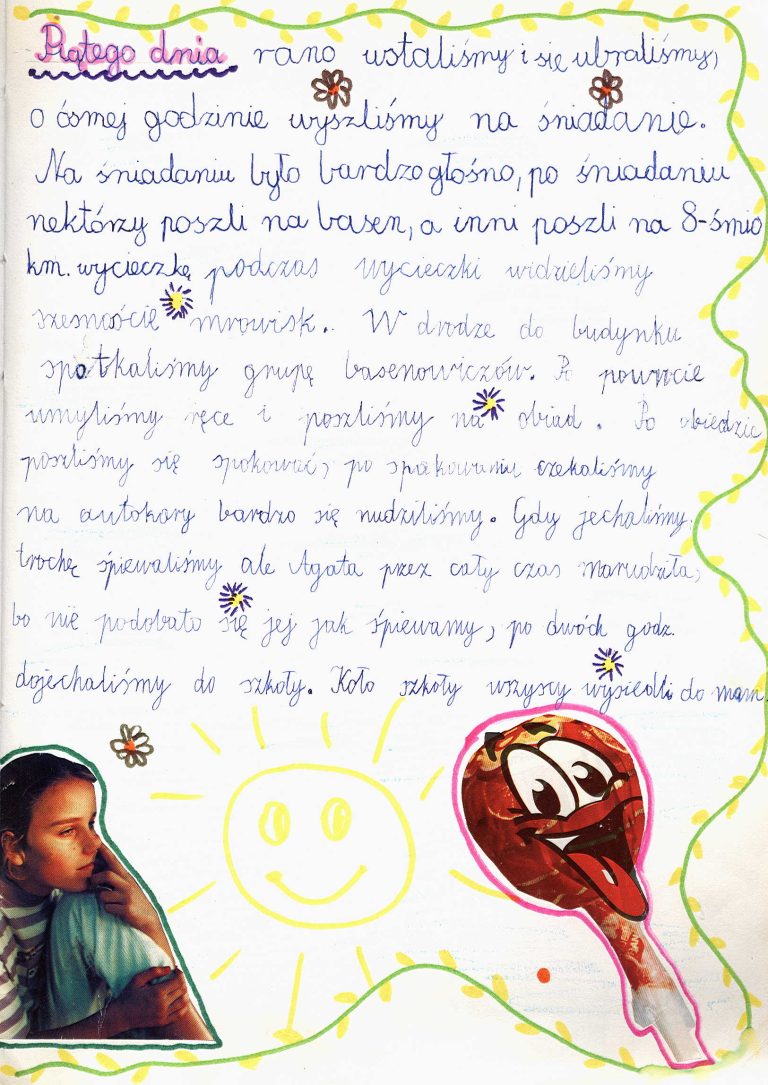 Piątego dnia rano wstaliśmy i się ubraliśmy,
o ósmej godzinie wyszliśmy na śniadanie.
Na śniadaniu było bardzo głośno, po śniadaniu
nektórzy poszli na basen, a inni poszli na 8-śmio
km. wycieczkę podczas wycieczki widzieliśmy
szesnaście mrowisk. W drodze do budynku
spotkaliśmy grupę basenowiczów. Po powrocie
umyliśmy ręce i poszliśmy na obiad. Po obiedzie
poszliśmy się spokować, po spakowaniu czekaliśmy
na autokary bardzo się nudziliśmy. Gdy jechaliśmy,
trochę śpiewaliśmy ale Agata przez cały czas marudziła,
bo nie podobało się jej jak śpiewamy, po dwóch godz.
dojechaliśmy do szkoły. Koło szkoły wszyscy wysiedli do mam.